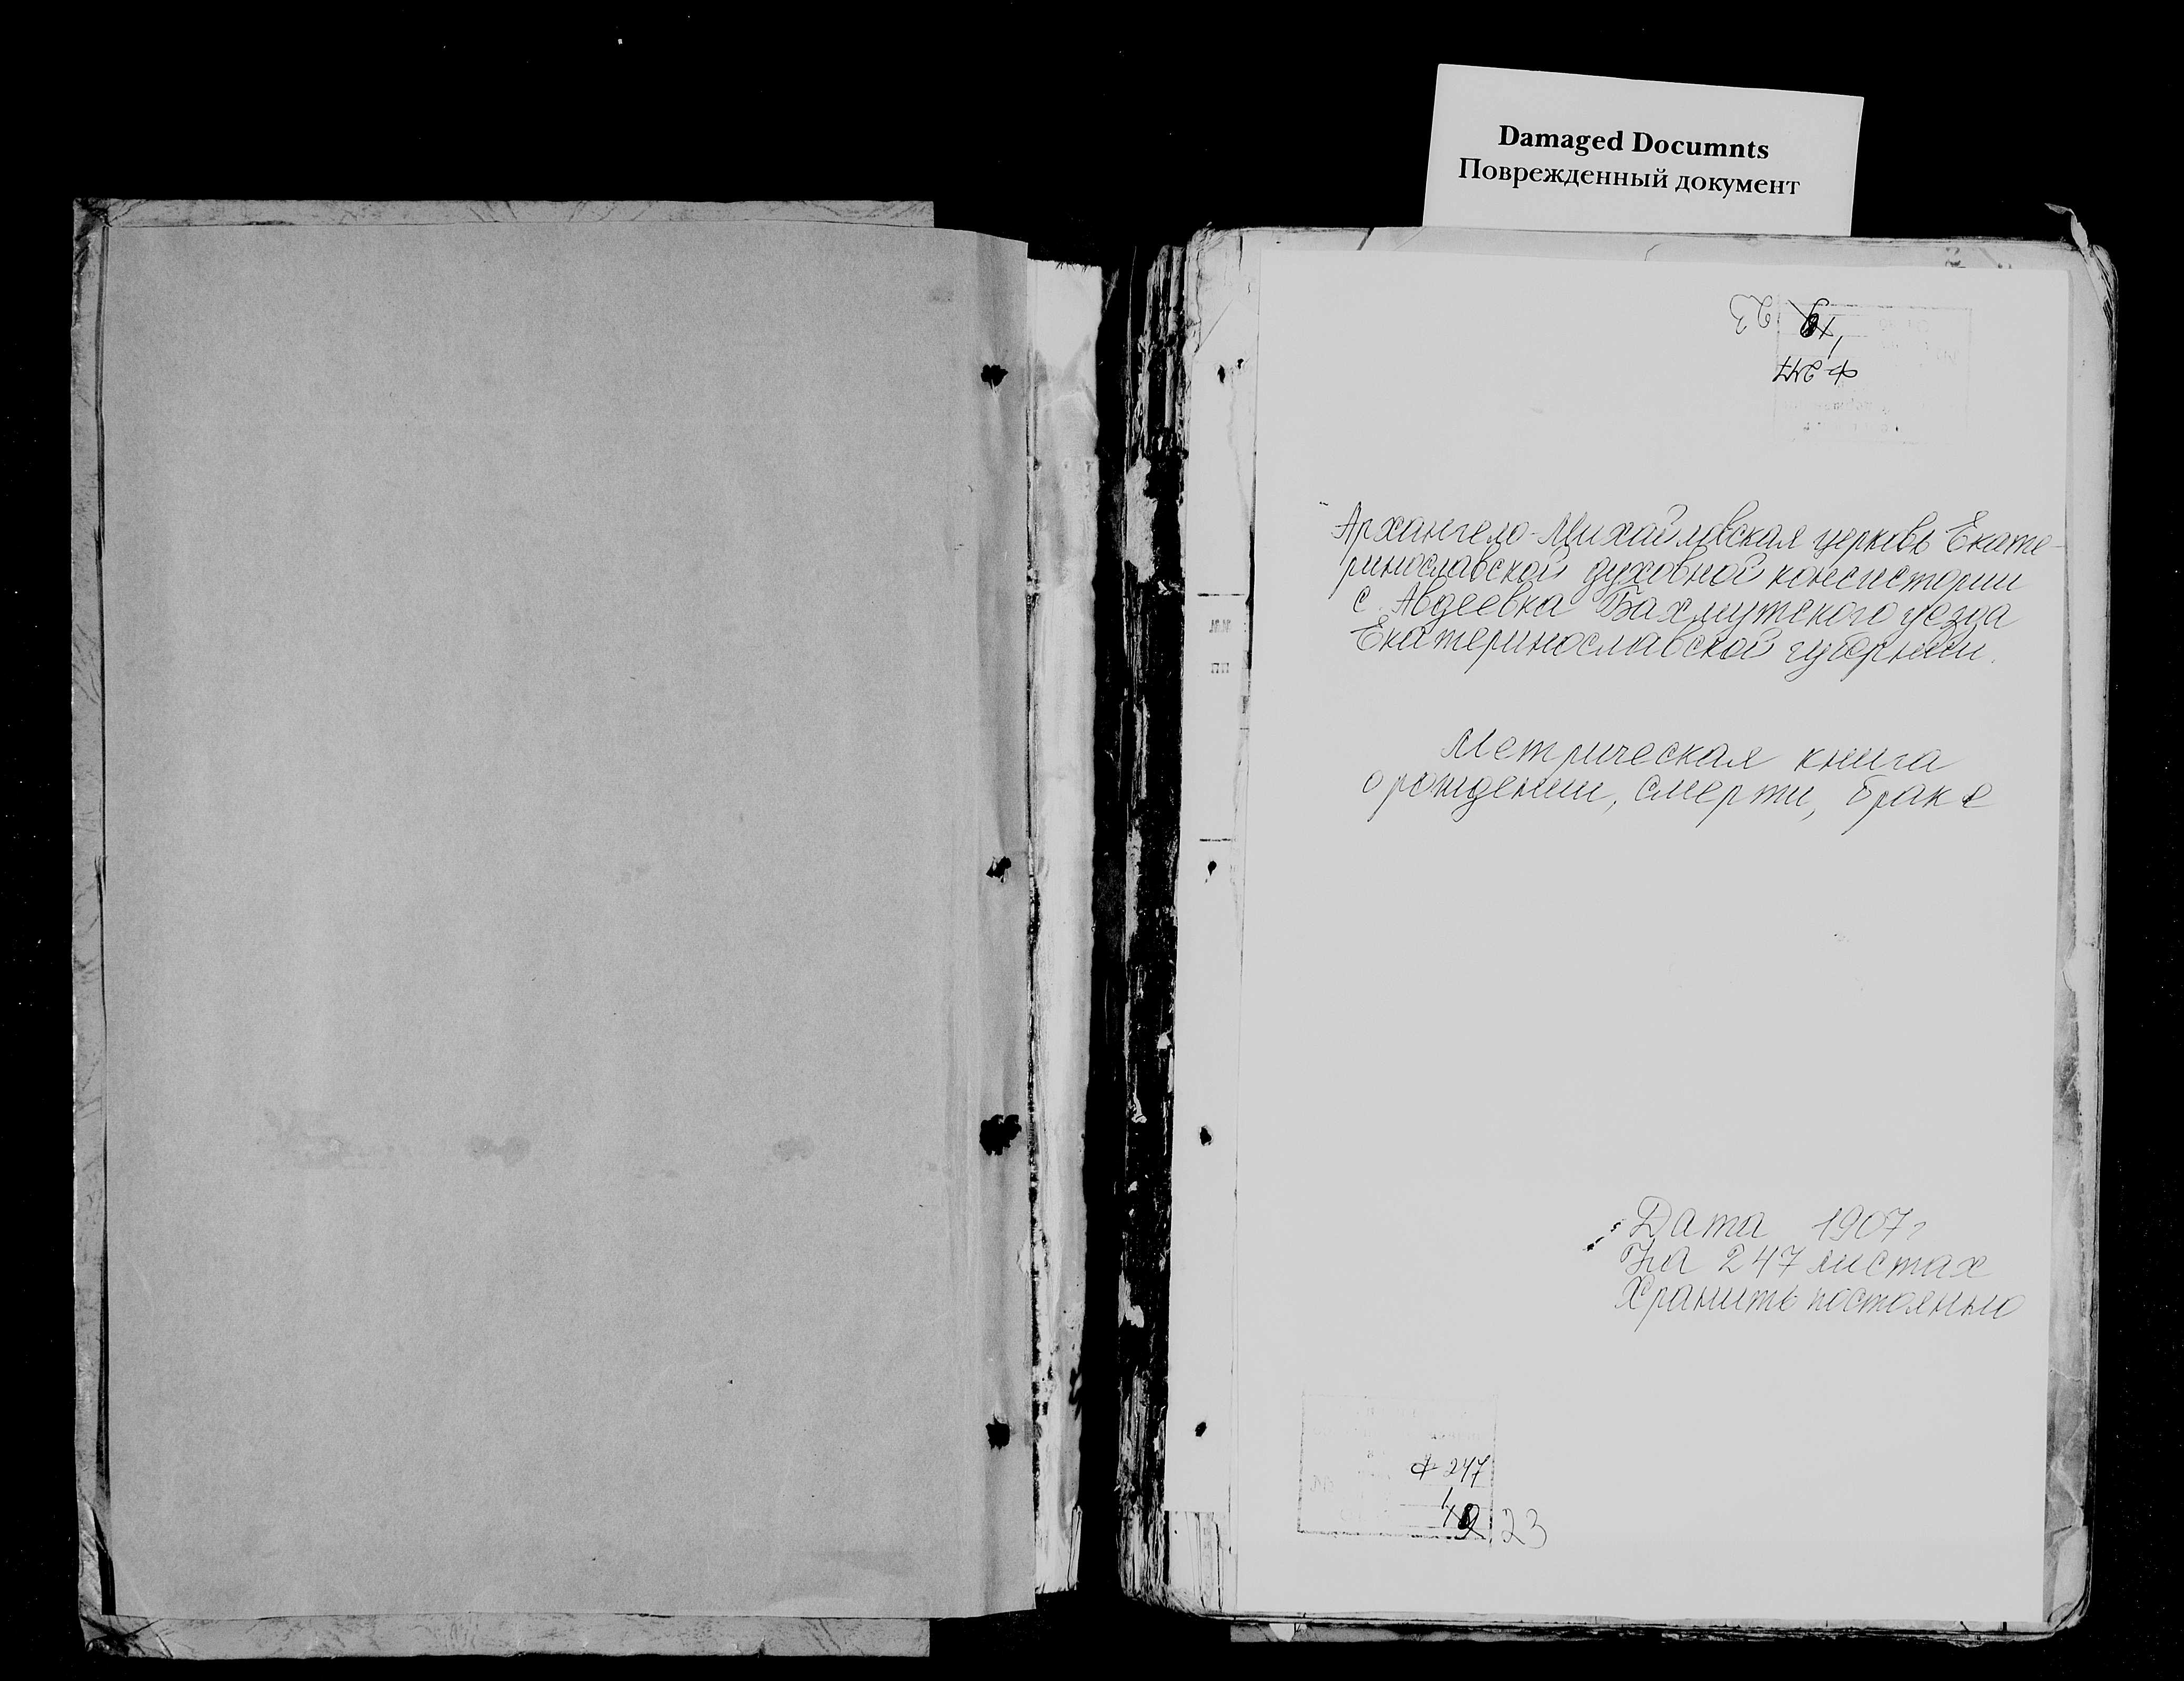 Damaged Documnts
Поврежденный документ
23
ф 247
Архангело-Михайловская церковь Екате-
ринославской духовной консистории
с. Авдеевка Бахмутского уезда
Екатеринославской губернии.
Метрическая книга
о рождении, смерти, браке
Дата 1907 г
На 247 листах
Хранить постоянно
ф 247
1
23